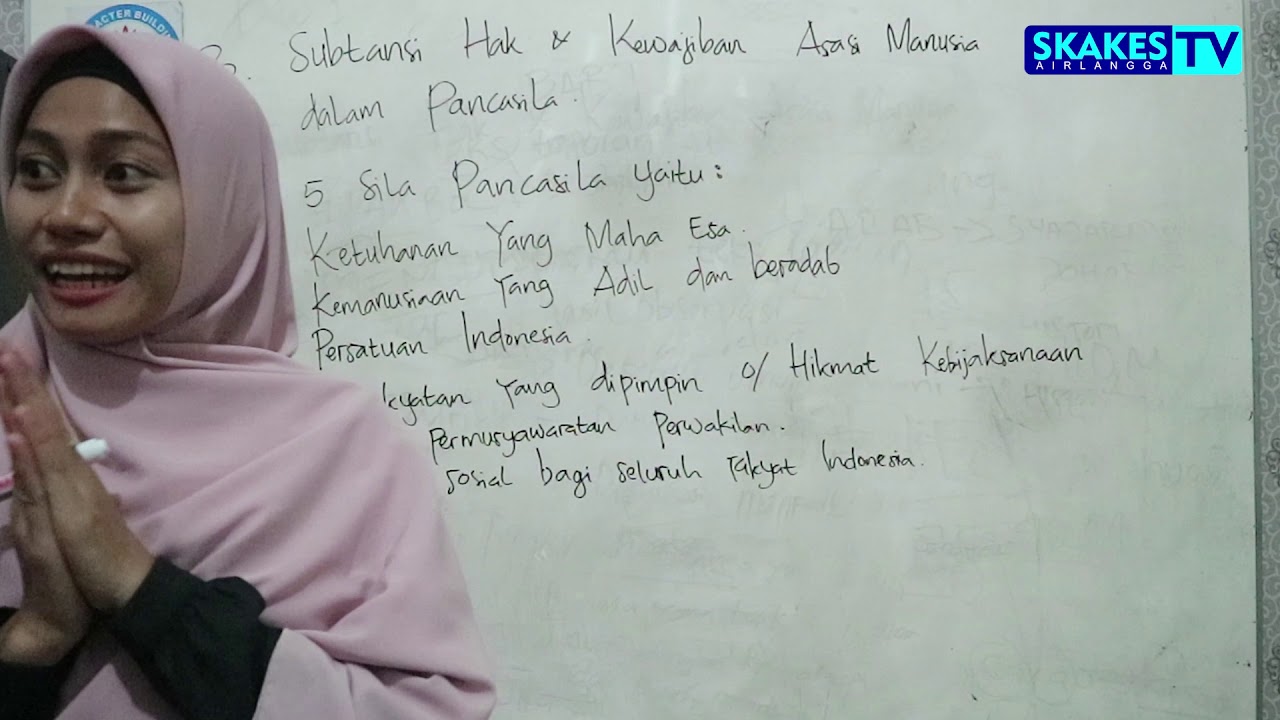 ACTER BUILDI
SKAKES TV
AIRLANGGA
Subtansi Hak & Kewajiban Asasi Manusia
dalam Pancasila.
5 Sila Pancasila yaitu:
Ketuhanan Yang Maha Esa.
Kemanusiaan Yang Adil dan beradab
Persatuan Indonesia.
kyatan Yang dipimpin o/ Hikmat Kebijaksanaan
Permusyawaratan Perwakilan.
Sosial bagi seluruh rakyat Indonesia.